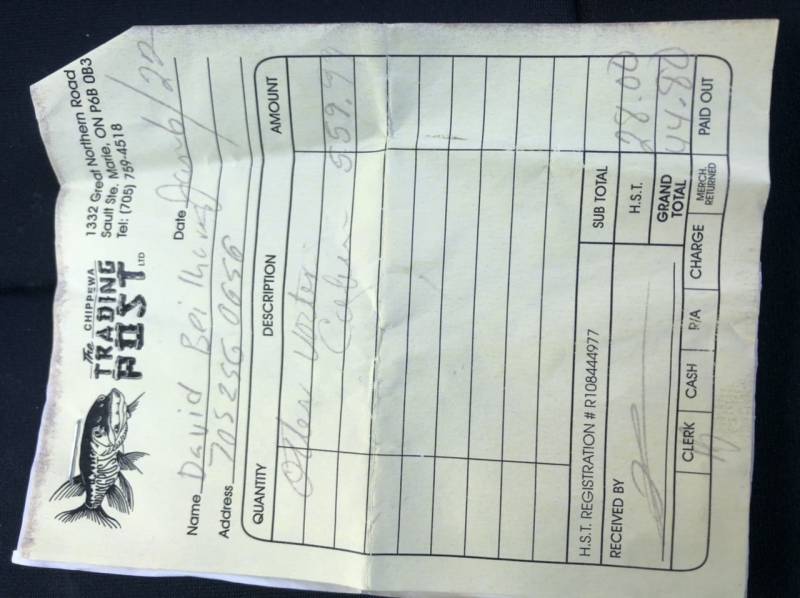 The CHIPPEWA
TRADING
POST LTD
1332 Great Northern Road
Sault Ste. Marie, ON P6B 0B3
Tel: (705) 759-4518
Name David Date
Address 705 256 0656
QUANTITY DESCRIPTION AMOUNT
Otter 559.99
SUB TOTAL 28.00
H.S.T. REGISTRATION # R108444977
RECEIVED BY
H.S.T.
GRAND TOTAL 44.80
CLERK CASH P/A CHARGE MERCH. RETURNED PAID OUT